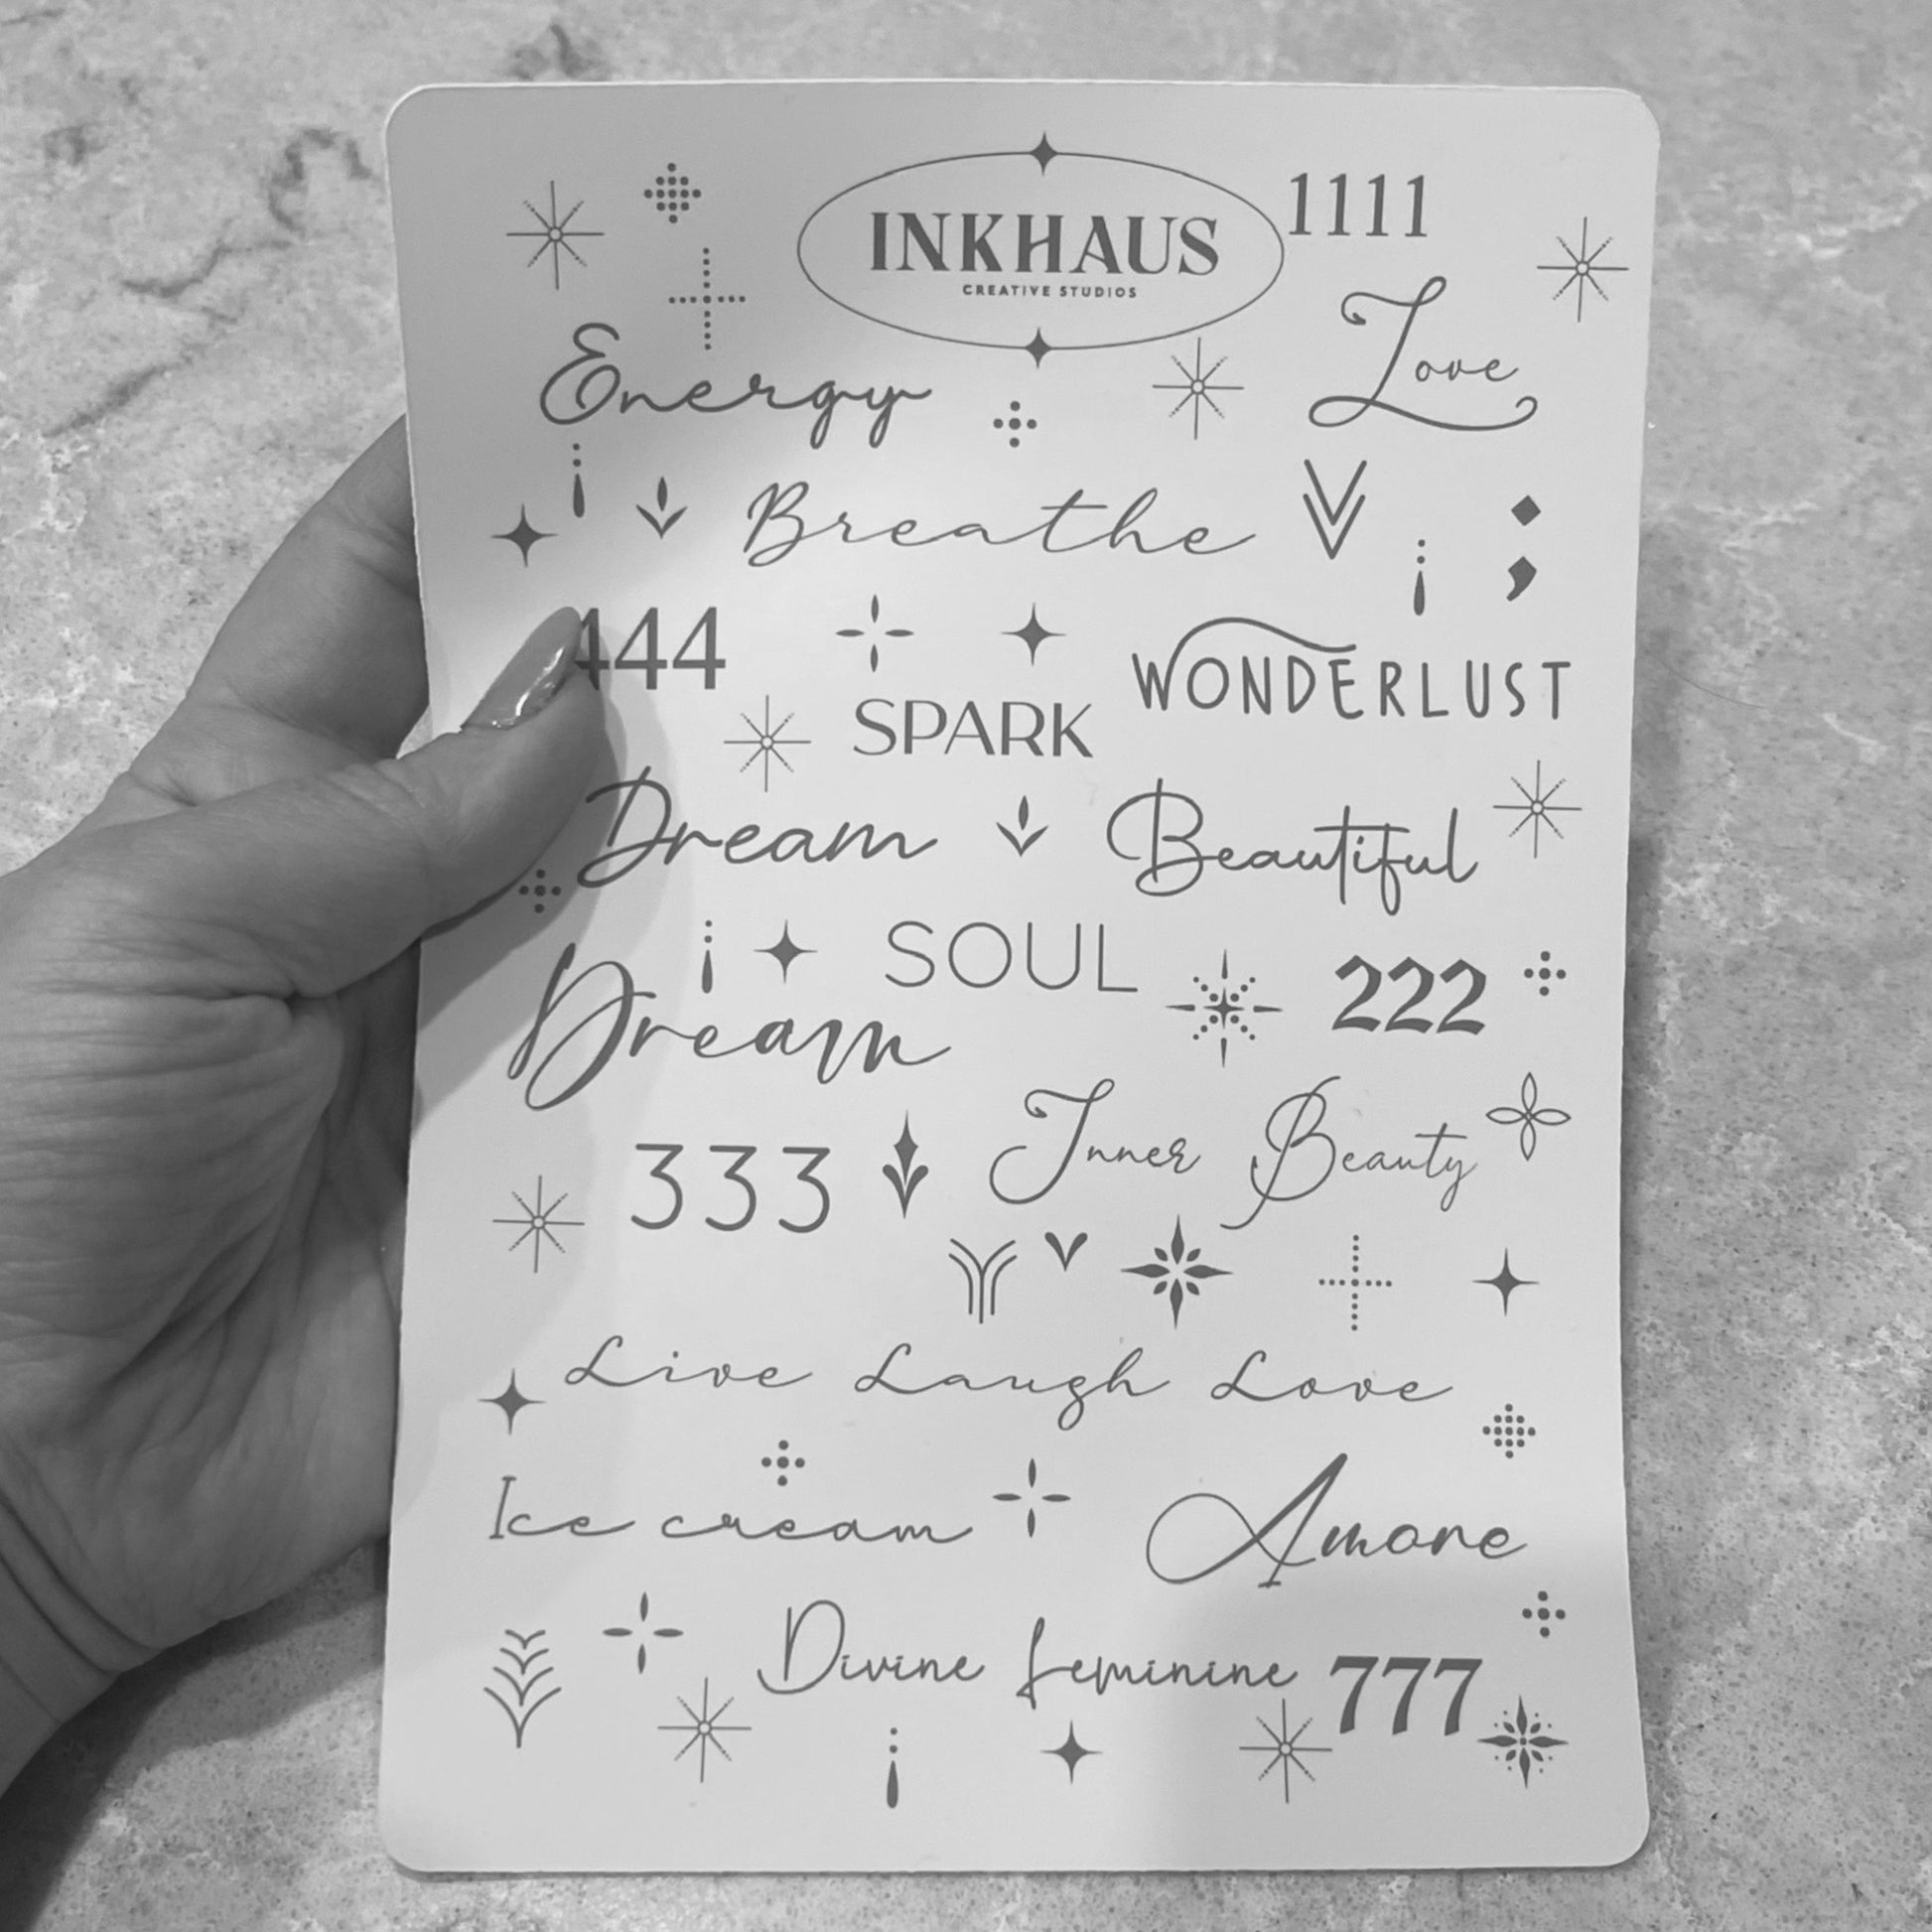 INKHAUS
CREATIVE STUDIOS
1111
Energy
Love
Breathe
;
444
WONDERLUST
SPARK
Dream
Beautiful
SOUL
222
Dream
333
Inner Beauty
Live Laugh Love
Ice cream
Amore
Divine feminine
777